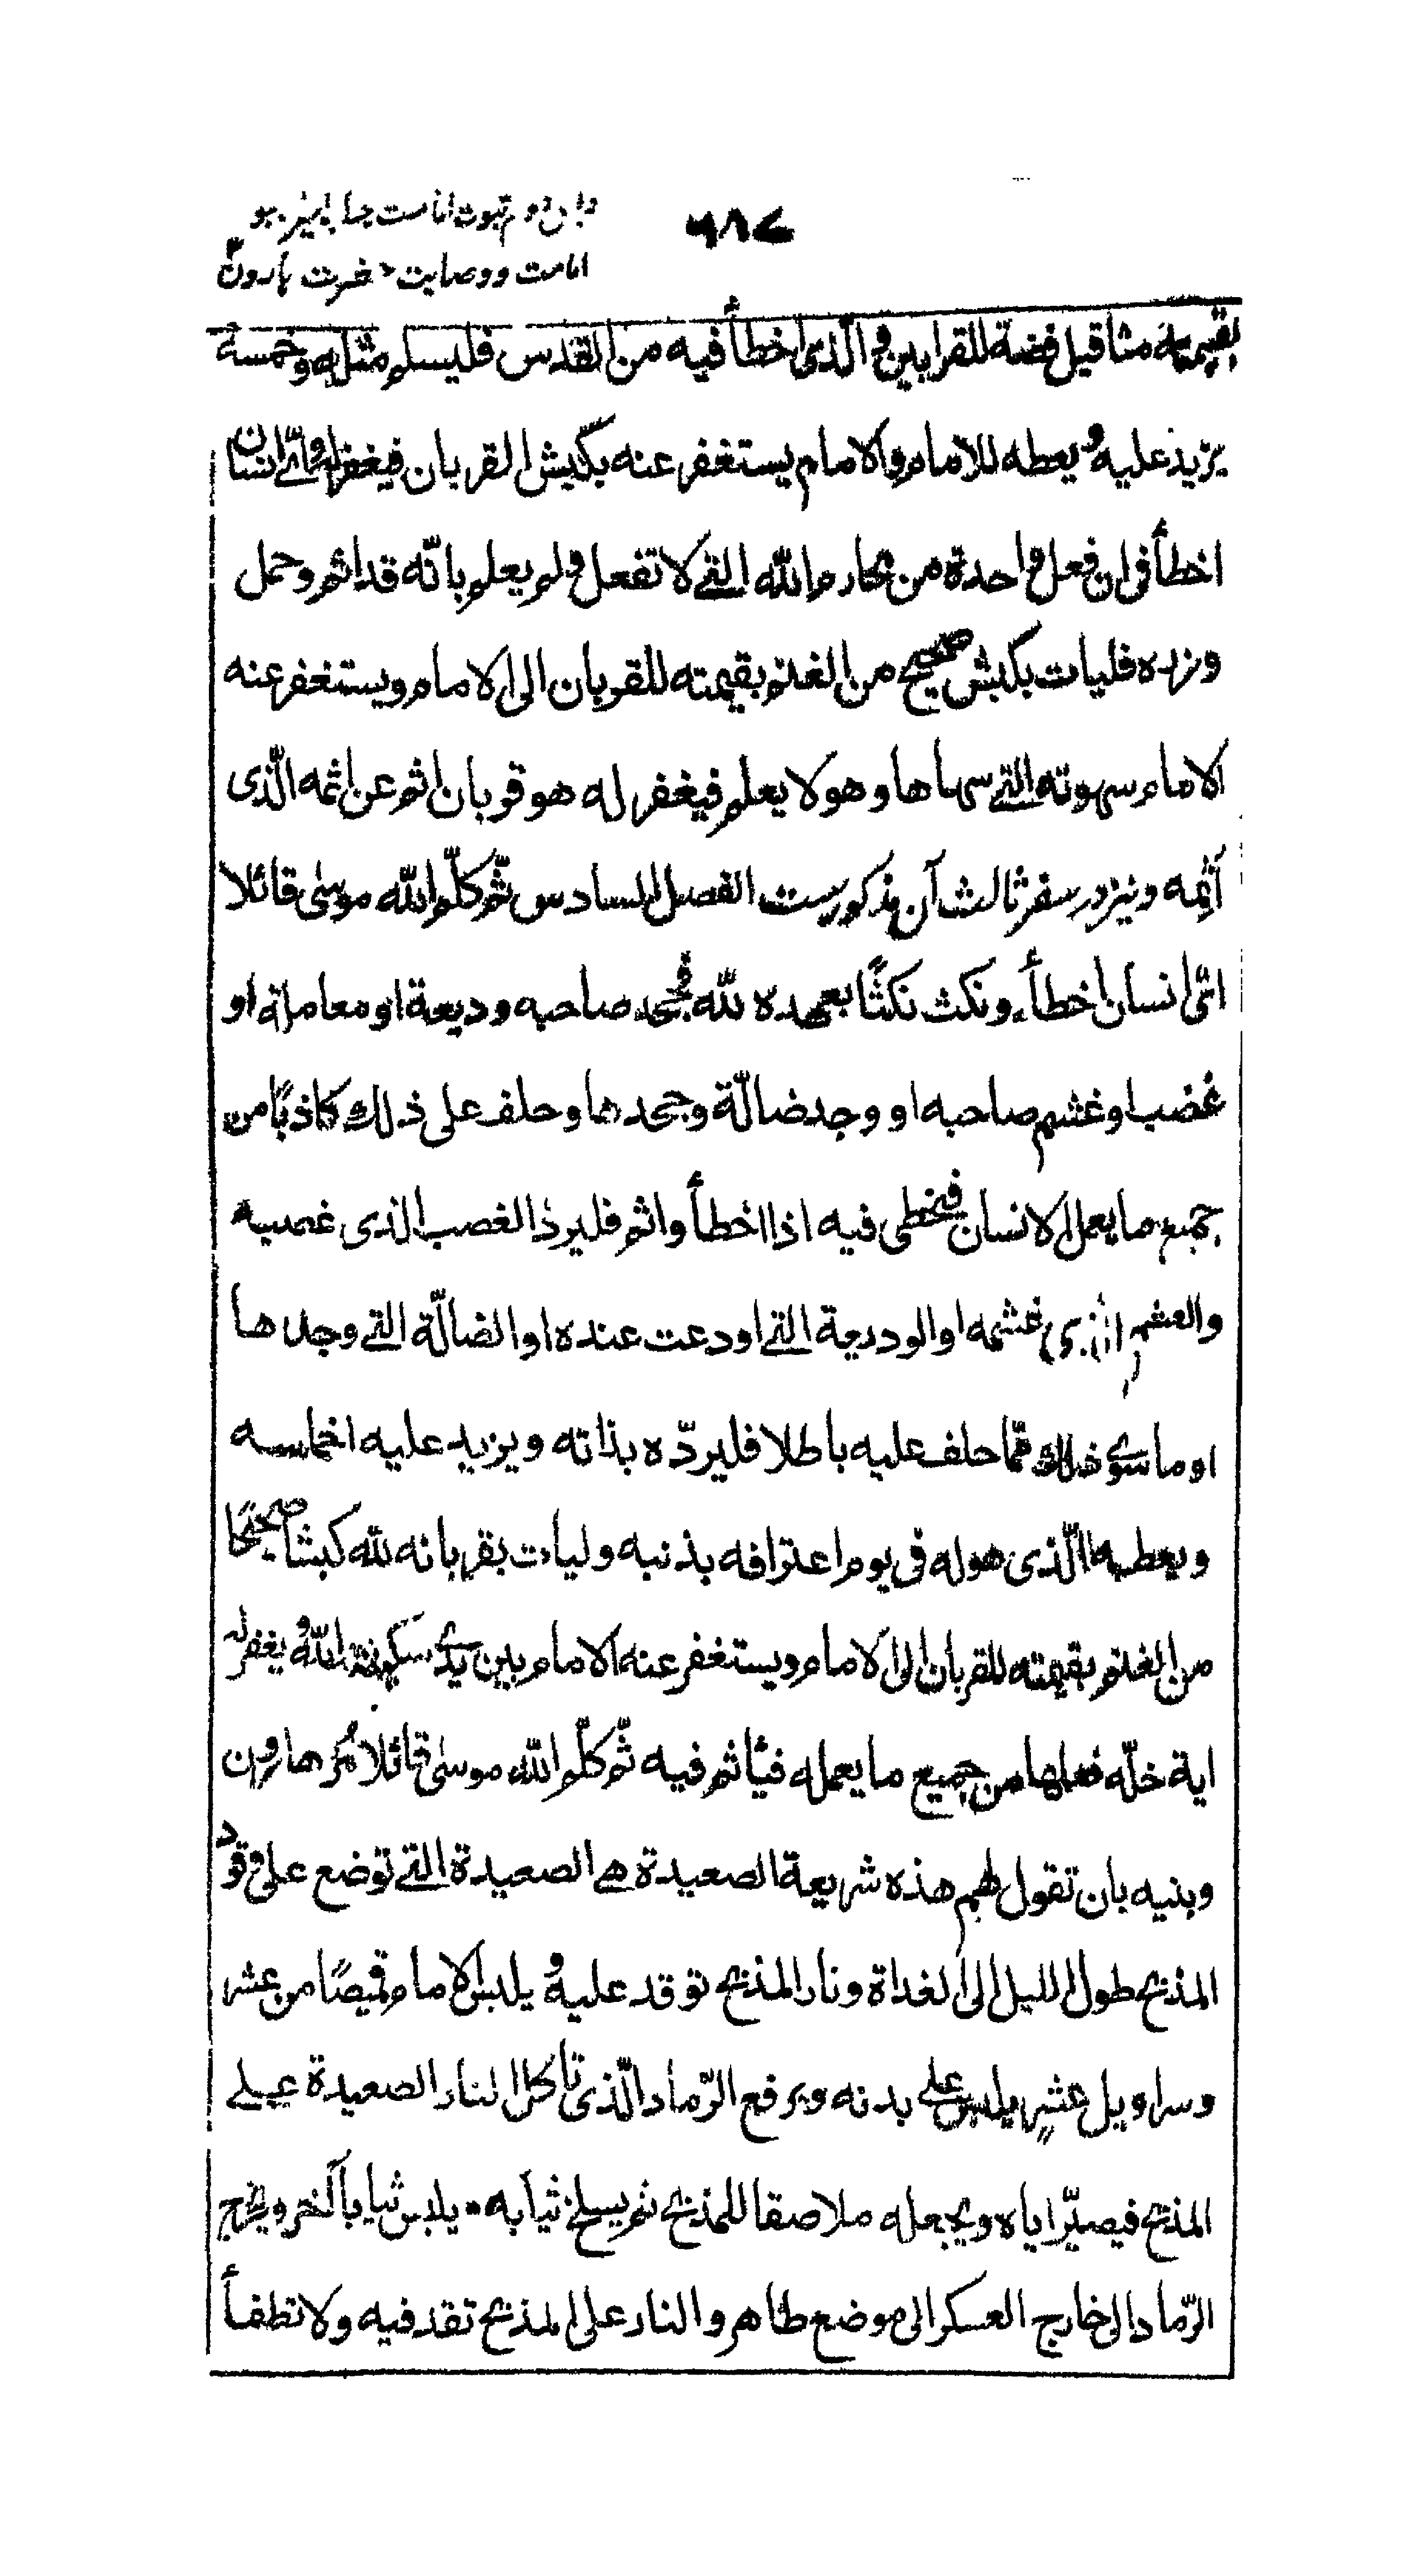 ۶۸۷
امامت ووصایت حضرت هارون
بقيمة مثاقيل فضة للقرابين والّذى اخطأ فيه من القدس فليسلم مثله وخمسة
يزيد عليه ويعطه للامام والامام يستغفر عنه بكبش القربان فيغفر له وايّ انسان
اخطأ وان فعل واحدة من محارم الله التى لا تفعل ولم يعلم بانّه قد اثم وحمل
وزره فليات بكبش صحيح من الغنم بقيمته للقربان الى الامام ويستغفر عنه
الامام سهوته التى سهاها وهو لا يعلم فيغفر له هو قربان اثم عن اثمه الّذى
أثمه ونیز در سفر ثالث آن مذکورست الفصل السادس ثّم كلّم الله موسى قائلا
ائى انسان اخطأ ونكث نكثًا بعهده لله فجحد صاحبه وديعة او معاملة او
غضب او غشم صاحبه او وجد ضالّة وجحدها وحلف على ذلك كاذبًا من
جميع ما يعمل الانسان فيخطى فيه اذا اخطأ واثم فليرد الغصب الذى غصبه
والغشم الذى غشمه او الوديعة التى اودعت عنده او الضالّة التى وجدها
او ما سوى ذلك ممّا حلف عليه باطلا فليردّه بذاته ويزيد عليه اخماسه
ويعطيها الّذى هو له فى يوم اعترافه بذنبه وليأت بقربانه لله كبشا صحيحًا
من الغنم بقيمته للقربان الى الامام ويستغفر عنه الامام بين يدى سكينة الله ويغفر له
اية خلّه فعلها من جميع ما يعمله فيأثم فيه ثّم كلّم الله موسى قائلا مُر هارون
وبنيه بان تقول لهم هذه شريعة الصعيدة هى الصعيدة التى توضع على وقود
المذبح طول الليل الى الغداة ونار المذبح توقد عليه ويلبس الامام قميصًا من عشر
وسراويل عشر يلبس على بدنه ويرفع الرّماد الّذى تاكل النار الصعيدة على
المذبح فيصيّر اياه ويجعله ملاصقا للمذبح ثم يسلخ ثيابه ويلبس ثيابا آخر ويخرج
الرّماد الى خارج العسكر الى موضع طاهر والنار على المذبح تقد فيه ولا تطفأ